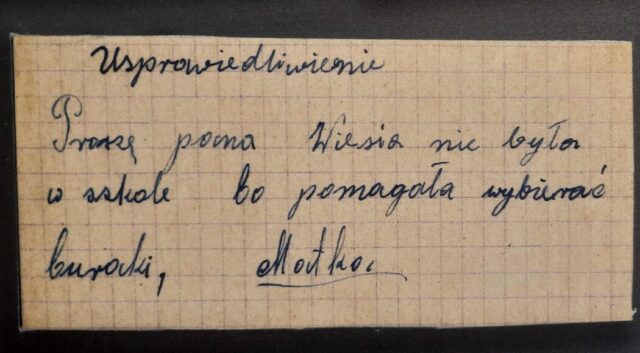 Usprawiedliwienie
Proszę pana Wiesia nie była
w szkole bo pomagała wybierać
buraki, Matka.